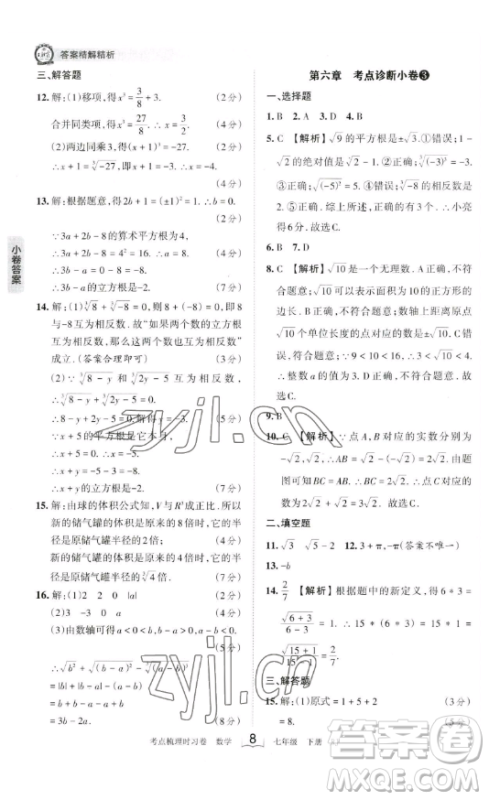 答案精解精析
三、解答题
12. 解:(1)移项,得 x³ = 3/8 + 3. (2分)
合并同类项,得 x³ = 27/8, ∴ x = 3/2. (4分)
(2)两边同乘3,得(x+1)³ = -27. (2分)
∴ x + 1 = ∛-27, 即 x + 1 = -3. ∴ x = -4.
(4分)
13. 解:根据题意,得 2a + b = (±1)² = 1. (2分)
∵ 3a + 2b - 8 的算术平方根为4,
∴ 3a + 2b - 8 = 4².
∴ 3b - a = 0
∴ 3b - a 的立方根是 (7分)
14. 解:(1)∛8 + ∛-8 = 0, 而 8 + (-8) = 0, 即8
与-8互为相反数. 故“如果两个数的立方根
互为相反数,那么这两个数也互为相反数”
成立. (答案合理即可) (3分)
(2)∵ ∛8-y 和 ∛2y-5 互为相反数,
∴ ∛8-y + ∛2y-5 = 0.
∴ 8 - y + 2y - 5 = 0, 解得 y = -3. (5分)
∵ x + 5 的平方根是它本身,
∴ x + 5 = 0. ∴ x = -5.
∴ x + y = -5 - 3 = -8.
∴ x + y 的立方根是-2. (7分)
15. 解:由球的体积公式知, V与R³成正比. 所以
新的储气罐的体积是原来的8倍时,它的半
径是原储气罐半径的2倍; (4分)
新的储气罐的体积是原来的4倍时,它的半
径是原储气罐半径的∛4倍. (7分)
16. 解:(1)2 2 0 |a| (2分)
(2)2 3 -3 0 a (4分)
(3)由数轴可得 a < 0 < b, a - b < 0, a + b > 0,
则
= |b| + |a| - |a - b| + a + b
= b - a + a - b + a + b
(7分)
小卷答案
第六章 考点诊断小卷❸
一、选择题
1. B 2. A 3. D 4. B
5. C 【解析】√9的平方根是±√3. ①正确;
1-√2的绝对值是√2-1. ②正确;
2. ⑤正确. 共有3个题正确,每题2分,小亮
得6分. 故选C.
6. B 7. D
8. C 【解析】√10是一个无理数,A不符合题
意;√10可以表示面积为10的正方形的
边长,B不符合题意;
单位长度的点对应的数为±√10,C符合题
意;∵ 9 < 10 < 16, ∴ 3 < √10 < 4.
∴ 整数a的值为3,D不符合题意. 故选C.
9. B
10. C 【解析】∵ 点A,B对应的实数分别为
-√2,√2, ∴ AB = √2 - (-√2) = 2√2. 由题图
可知,BC = AB, ∴ OC = OB + BC = OB + AB =
√2 + 2√2 = 3√2. ∴ 点C对应的实数为3√2.
故选C.
二、填空题
11. √3 √5 - 2 12. 3 + π, -π (答案不唯一)
13. -b
14. 2/7 【解析】根据题中的新定义,得6 * 3 =
√6+3 / 6-3 = 1. 所以, 15 * (6 * 3) = 15 * 1 =
√15+1 / 15-1 = 2/7.
三、解答题
15. 解:(1)原式 = 1 + 5 + 2 (3分)
= 8. (5分)
考点梳理时习卷 数学 8 七年级 下册
zyjl.cn
zyjl.cn
答案圈